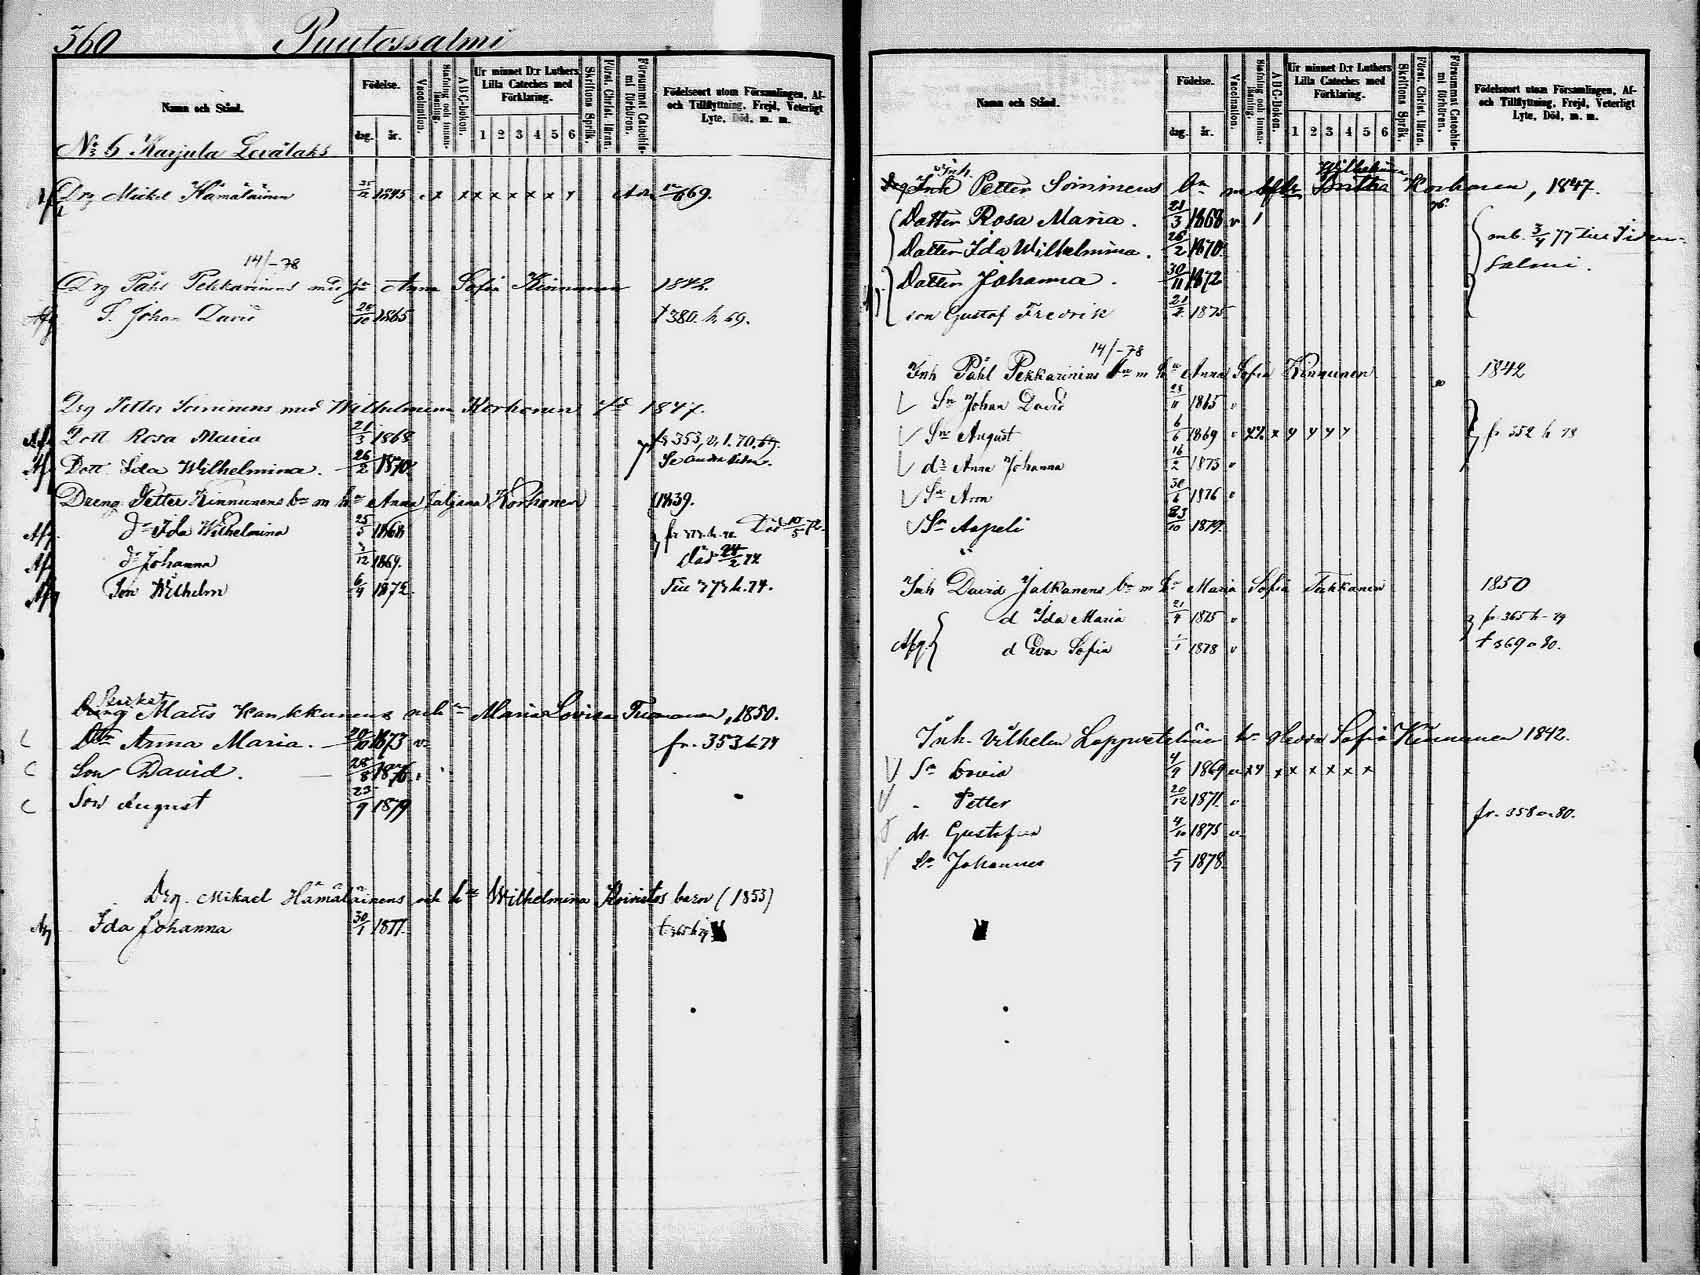 360 Puutossalmi
Namn och Stånd.
Födelse.
dag. år.
Vaccination.
Stafning och innanläsning.
ABC-Boken.
Ur minnet D:r Luthers Lilla Cateches med Förklaring.
1 2 3 4 5 6
Skriftens Språk.
Först. Christ. läran.
Försummat Catechismi förhören.
Födelseort utom Församlingen, Af- och Tillflyttning, Frejd, Veterligt Lyte, Död, m. m.
No 6 Karjula Levälaks
Drg Mickel Hämäläinen 1845 x x x x x x x 69.
14/-78
Drg Påhl Pekkarinens med Anna Sofia Kinnunen 1842.
Afg S. Johan David 10 1865 t 380. h. 69.
Drg Petter Sorninens med Wilhelmina Korhonen 1847.
Afg Dott Rosa Maria 21/3 1868 fr 353, v. 1. 70.
Afg Dott Ida Wilhelmina. 26/2 1870 Se andra sidan.
Dreng Petter Kinnunens bn m hu Anna Korhonen 1839.
Afg dr Ida Wilhelmina 25/5 1868 Död 10/5 72.
Afg dr Johanna 12 1869. död 24/2 72
Afg Son Wilhelm 6/4 1872 Till 373 h. 74.
Matts Kankkunens och Maria Lovisa 1850.
Dtr Anna Maria. 20/10 1873 v fr. 353 h 79
Son David. 28/8 1876
Son August 23/9 1879
Drg. Mikael Hämäläinens och hu Wilhelmina barn (1853)
Afg Ida Johanna 30/1 1877.
Namn och Stånd.
Födelse.
dag. år.
Vaccination.
Stafning och innanläsning.
ABC-Boken.
Ur minnet D:r Luthers Lilla Cateches med Förklaring.
1 2 3 4 5 6
Skriftens Språk.
Först. Christ. läran.
Försummat Catechismi förhören.
Födelseort utom Församlingen, Af- och Tillflyttning, Frejd, Veterligt Lyte, Död, m. m.
Inh. Wilhelmina
Inh Petter Sorninens bn m Britta Korhonen, 1847.
Dotter Rosa Maria. 21/3 1868 v 1
Dotter Ida Wilhelmina. 26/2 1870. 3/4 77
Dotter Johanna. 30/11 1872
son Gustaf Fredrik 1875
14/-78
Inh Påhl Pekkarinens bn m hu Anna Sofia Kinnunen 1842
Sn Johan David 1865 v
Sn August 6/6 1869 v x fr 352 h 78
dr Anna Johanna 16/2 1873 v
Sn Aron 30/6 1876 v
Sn Aapeli 23/10 1879.
Inh David Jalkanens bn m hu Maria Sofia Tukkanen 1850
d Ida Maria 21/9 1875 v fr. 365 h - 79
Afg. d Eva Sofia 1/1 1878 v t 369 v 80.
Inh. Vilhelm hu Hedda Sofia Kinnunen 1842.
Sn 4/9 1869 v x x x x x x x
Petter 20/12 1871. v
dr. Gustafva 4/10 1875 v fr. 358 v. 80.
Sn Johannes 5/7 1878